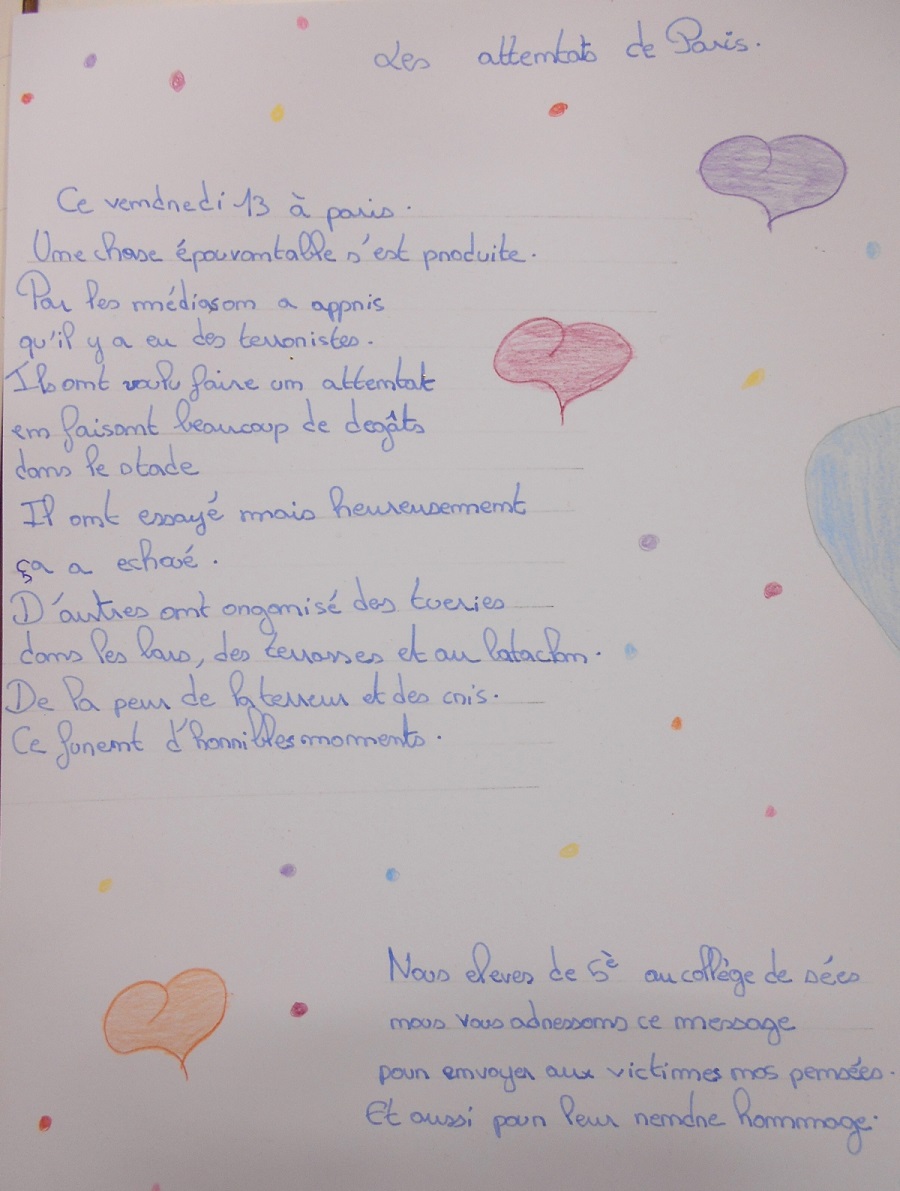 Les attentats de Paris.
Ce vendredi 13 à paris.
Une chose épouvantable s'est produite.
Par les médias on a appris
qu'il y a eu des terroristes.
Ils ont voulu faire un attentat
en faisant beaucoup de degâts
dans le stade
Il ont essayé mais heureusement
ça a echoué.
D'autres ont organisé des tueries
dans les bars, des terrasses et au bataclan.
De la peur de la terreur et des cris.
Ce furent d'horribles moments.
Nous eleves de 5è au collège de sées
nous vous adressons ce message
pour envoyer aux victimes nos pensées.
Et aussi pour leur rendre hommage.